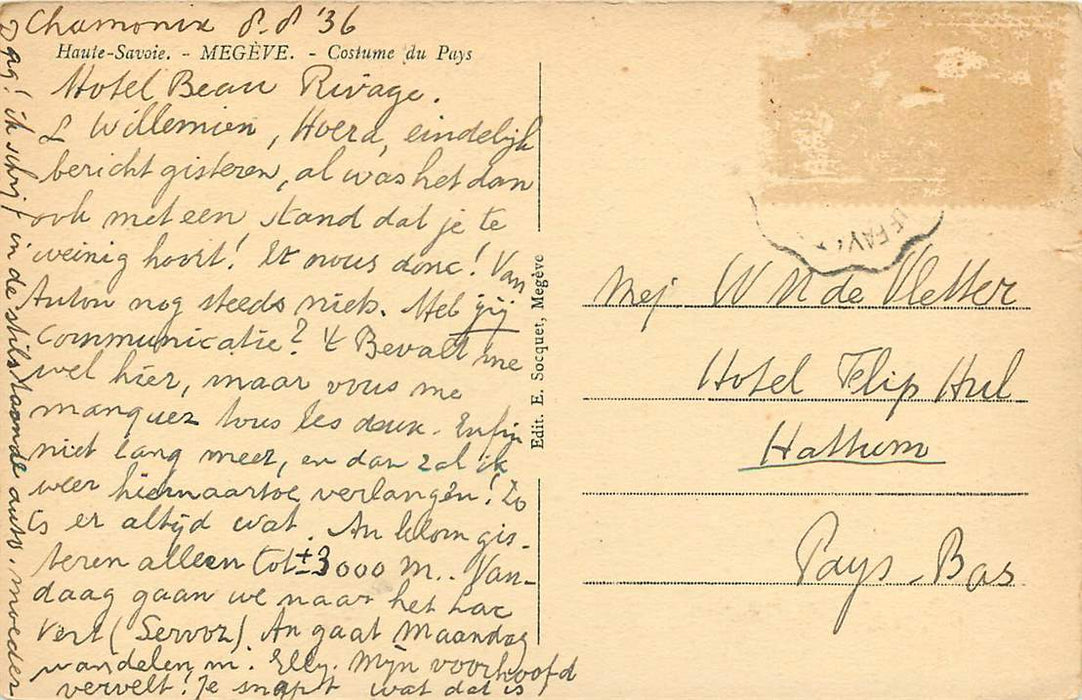 Chamonix 8.8 '36
Haute-Savoie. - MEGÈVE. - Costume du Pays
Hotel Beau Rivage.
L Willemien, Hoera, eindelijk
bericht gisteren, al was het dan
ook met een stand dat je te
weinig hoort! Et nous donc! Van
Anton nog steeds niets. Heb jij
Communicatie? 't Bevalt me
wel hier, maar vous me
manquez tous les deux. Enfin
niet lang meer, en dan zal ik
weer hiernaartoe verlangen! Zo
is er altijd wat. An klom gis-
teren alleen tot ± 3000 m.. Van-
daag gaan we naar het Lac
Vert (Servoz). An gaat Maandag
wandelen m. Elly. Mijn voorhoofd
vervelt! Je snapt wat dat is
Dag! ik schrijf in de stilstaande auto. moeder
Edit. E. Socquet, Megève
Mej W N de Vletter
Hotel Flip Hul
Hattum
Pays-Bas